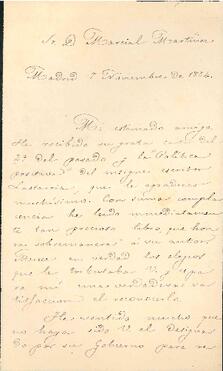 Sr. D. Marcial Martinez
Madrid 7 Noviembre de 1884.
Mi estimado amigo
He recibido su grata del
2º del pasado y la Política
positiva del insigne escritor
Lastarria, que le agradezco
muchísimo. Con suma compla
cencia he leido inmediatamen
te tan precioso libro, que hon
ra sobremanera á su autor.
Merece en verdad los elogios
que le tributaba V. y
para mí una verdadera sa
tisfaccion el reconocerlo.
He sentido mucho que
no haya sido V. el designa
do por su Gobierno para